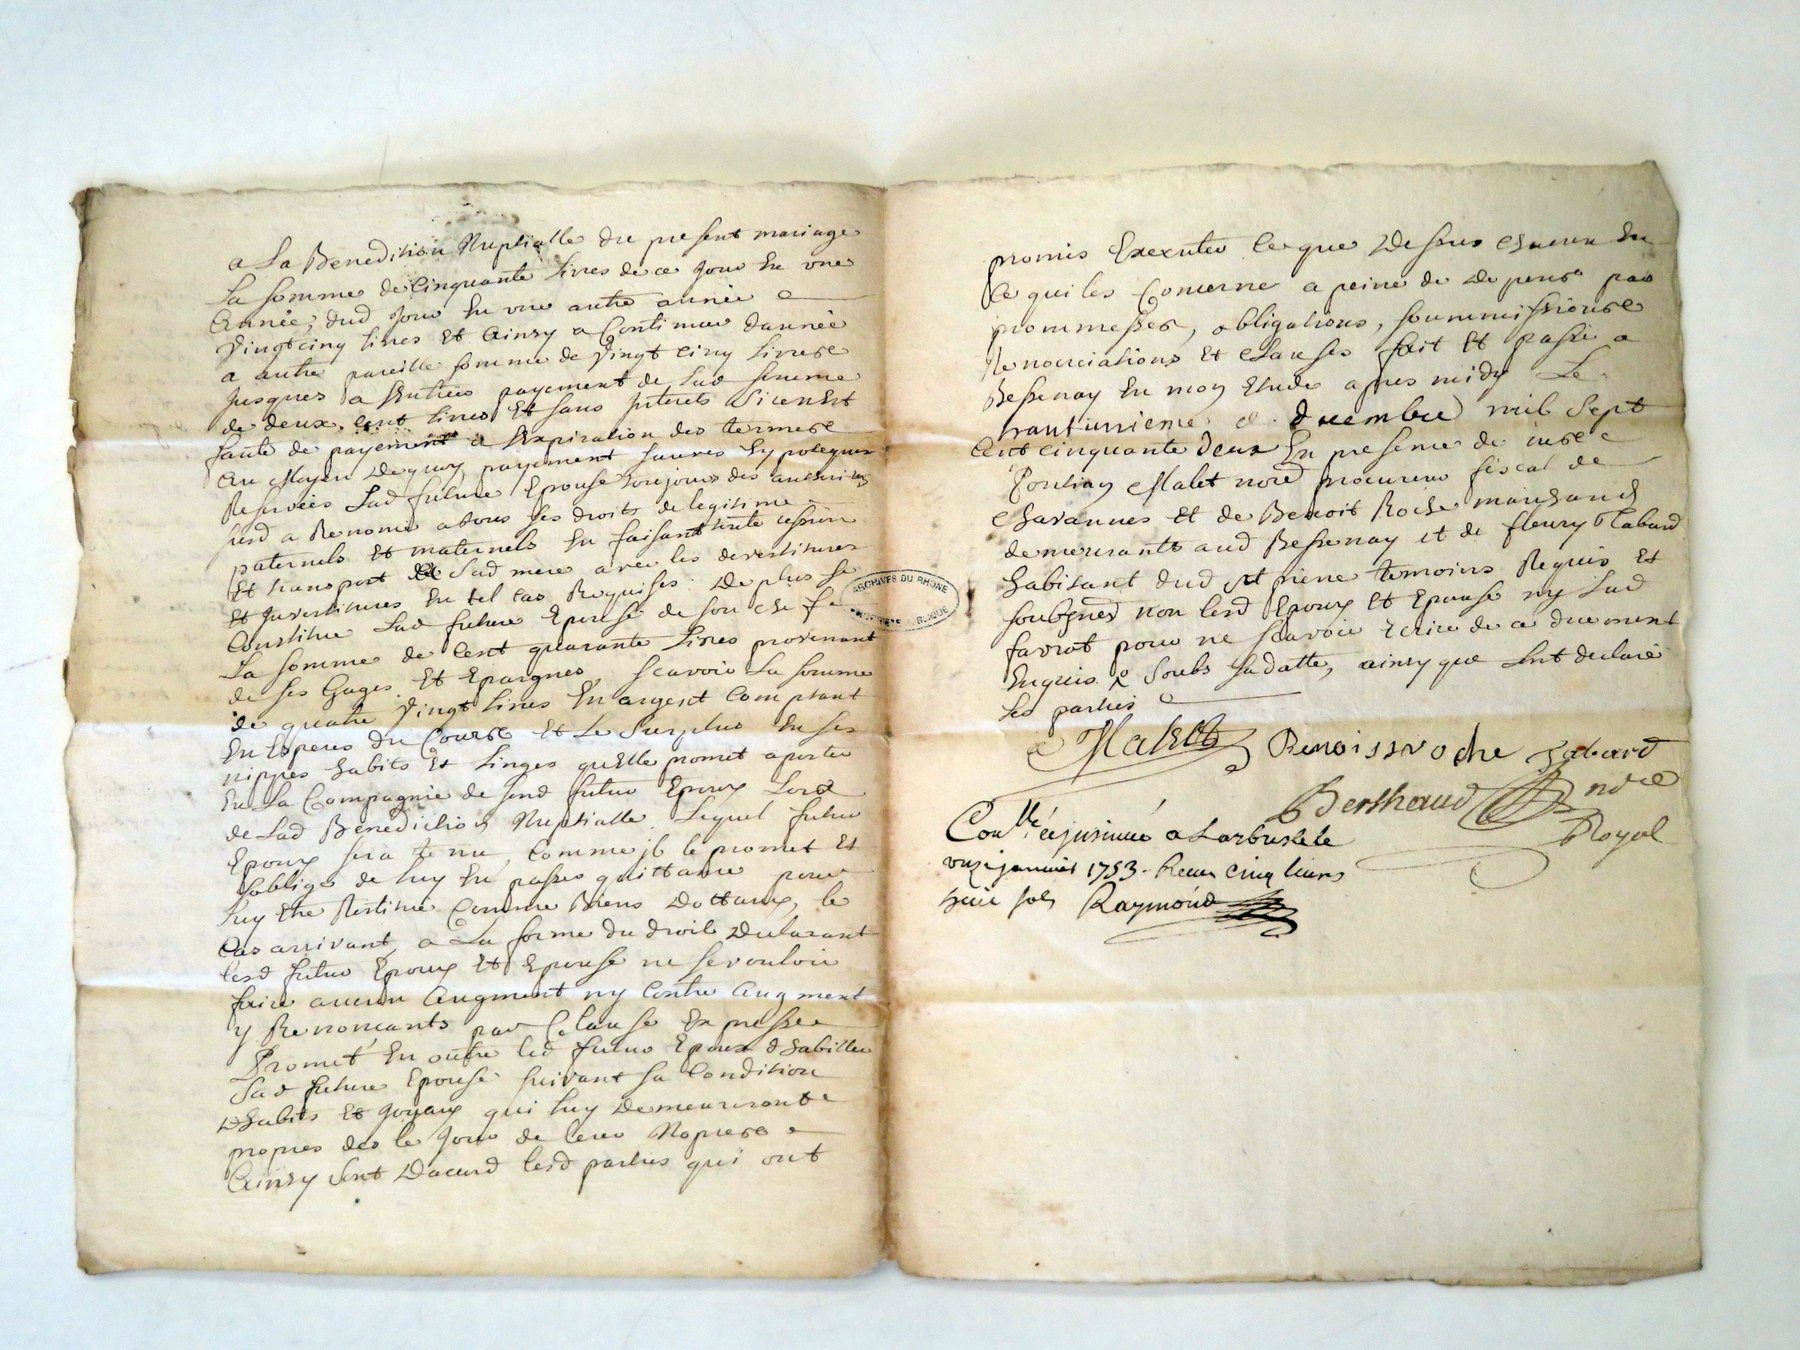 a La Benediction Nuptialle du present mariage
La somme de Cinquante livres de ce jour En une
Année, dud jour En une autre année
Vingt cinq livres Et Ainsy a Continuer dannée
a autre pareille somme de Vingt cinq livres
jusques a Entier payement de Lad somme
de deux cent livres Et sans interets sice n'est
faute de payement a Lexpiration des termes
Au Moyen Dequoy payement sauves hypoteques
Reservées Lad future Epouse toujours des
lesd a Renoncé a tous ses droits de legitime
paternels Et maternels En faisant toute cession
Et transport a Sad mere avec les devestitures
Et Investitures En tel cas Requises De plus se
Constitue Lad future Epouse de son chef
La somme de Cent quarante livres provenant
de ses Gages Et Epargnes scavoir La somme
de quatre Vingt livres En argent Comptant
En Especes du Cours Et Le Surplus En ses
nippes habits Et Linges qu'Elle promet aporter
En La Compagnie de sond futur Epoux Lors
de Lad Benediction Nuptialle Lequel futur
Epoux sera tenu, Comme jl le promet Et
soblige de luy En passer quittance pour
luy Etre Restitué Comme Biens Dottaux, le
Cas arrivant, a La forme du droit Declarant
lesd futur Epoux Et Epouse ne se vouloir
faire aucun Augment ny Contre Augment
y Renoncants par Clause Expresse
Promet En outre led futur Epoux d'habiller
Sad future Epouse suivant sa Condition
Dhabits Et Joyaux qui luy Demeureront
propres des le Jour de leur Nopces
Ainsy sont Dacord lesd parties qui ont
promis Executer Ce que Dessus chacun En
Ce qui les Concerne a peine de Depens par
prommesses, obligations, soummissions
Renonciations Et Clauses fait Et passé a
Bessenay En mon Etude apres midy Le
trantunieme decembre mil sept
Cent cinquante deux En presence de
Pontian Malet nore procureur fiscal de
Chavannes Et de Benoit Roche marchand
demeurants aud Bessenay et de fleury Tabard
habitant dud st piere temoins Requis Et
soubsnés non lesd Epoux Et Epouse ny Lad
favrot pour ne scavoir Ecrire de ce duement
Enquis & Soubs sa datte, ainsy que lont declaré
les parties
Malet Benoist roche Tabard
Berthaud nore
Royal
Conllé &jnsinué a Larbresle le
onze janvier 1753. Receu cinq livres
seise sols Raymond
ARCHIVES DU RHONE
PROPRIETE PUBLIQUE